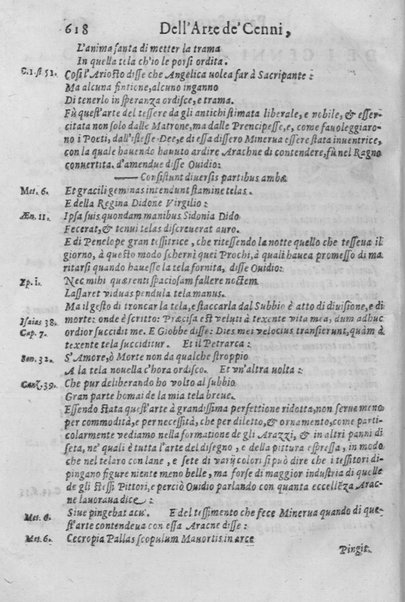 618 Dell'Arte de' Cenni,
L'anima santa di metter la trama
In quella tela ch'io le porsi ordita.
C. 1. st. 51. Così l'Ariosto disse che Angelica volea far à Sacripante:
Ma alcuna fintione, alcuno inganno
Di tenerlo in speranza ordisce, e trama.
Fù quest'arte del tessere da gli antichi stimata liberale, e nobile, & esser-
citata non solo dalle Matrone, ma dalle Prencipesse, e, come fauoleggiaro-
no i Poeti, dall'istesse Dee, e di essa dissero Minerua essere stata inuentrice,
con la quale hauendo hauuto ardire Arachne di contendere, fù nel Ragno
conuertita. d'amendue disse Ouidio:
—— Consistunt diuersis partibus ambæ
Met. 6. Et gracili geminas intendunt stamine telas.
E della Regina Didone Virgilio:
Æn. 11. Ipsa suis quondam manibus Sidonia Dido
Fecerat, & tenui telas discreuerat auro.
E di Penelope gran tessitrice, che ritessendo la notte quello che tesseua il
giorno, à questo modo schernì quei Prochi, à quali hauea promesso di ma
ritarsi quando hauesse la tela fornita, disse Ouidio:
Ep. 1. Nec mihi quærenti spaciosam fallere noctem
Lassaret viduas pendula tela manus.
Ma il gesto di troncar la tela, e staccarla dal Subbio è atto di diuisione, e di
Isaias 38. morte: onde è scritto: Præcisa est veluti à texente vita mea, dum adhuc
Cap. 7. ordior succidit me. E Giobbe disse: Dies mei velocius transierunt, quàm à
texente tela succiditur. Et il Petrarca:
Son. 32. S'Amore, ò Morte non da qualche stroppio
A la tela nouella c'hora ordisco. Et vn'altra volta:
Canz. 39. Che pur deliberando ho volto al subbio
Gran parte homai de la mia tela breue.
Essendo stata quest'arte à grandissima perfettione ridotta, non serue meno
per commodità, e per necessità, che per diletto, & ornamento, come parti-
colarmente vediamo nella formatione de gli Arazzi, & in altri panni di
seta, ne' quali è tutta l'arte del disegno, e della pittura espressa, in modo
che nel telaro con lane, e sete di varij colori si può dire che i tessitori di-
pingano figure niente meno belle, ma forse di maggior industria di quelle
de gli stessi Pittori, e perciò Ouidio parlando con quanta eccellẽza Arac-
ne lauoraua dice:
Met. 6. Siue pingebat acu. E del tessimento che fece Minerua quando di que-
st'arte contendeua con essa Aracne disse:
Met. 6. Cecropia Pallas scopulum Mauortis in arce
Pingit